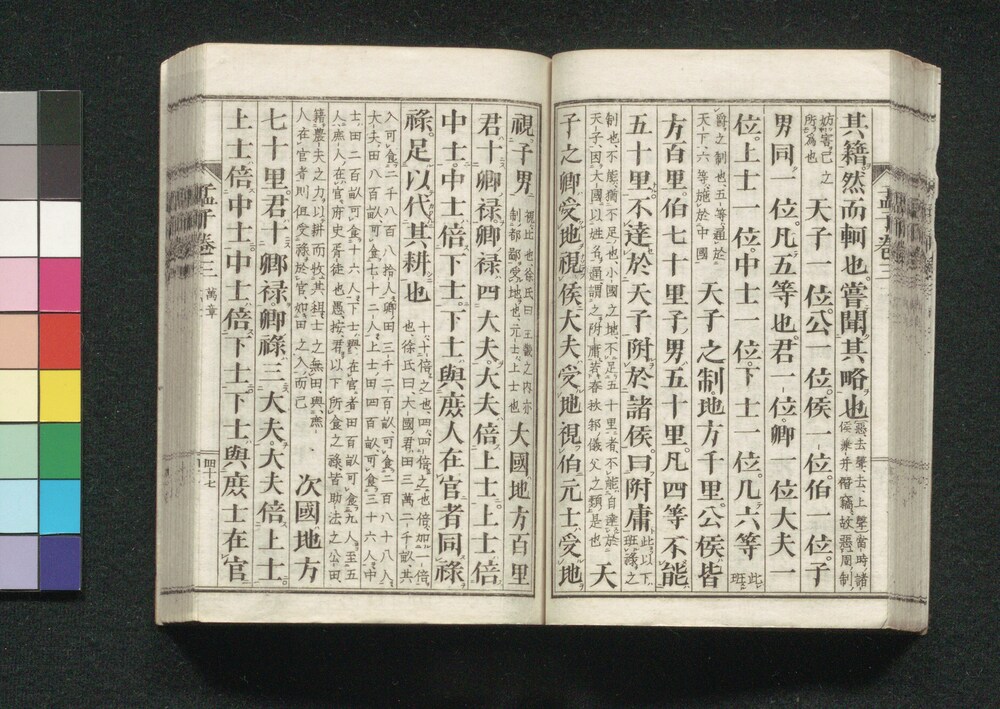 其籍然而軻也嘗聞其略也惡去聲去上聲當時諸侯兼并僭竊故惡周制
妨害己之所為也天子一位公一位侯一位伯一位子
男同一位凡五等也君一位卿一位大夫一
位上士一位中士一位下士一位凡六等此班
爵之制也五等通於天下六等施於中國天子之制地方千里公侯皆
方百里伯七十里子男五十里凡四等不能
五十里不達於天子附於諸侯曰附庸此以下班祿之
制也不能猶不足也小國之地不足五十里者不能自達於天子因大國以姓名通謂之附庸若春秋邾儀父之類是也天
子之卿受地視侯大夫受地視伯元士受地
視子男視比也徐氏曰王畿之內亦制都鄙受地也元士上士也大國地方百里
君十卿祿卿祿四大夫大夫倍上士上士倍
中士中士倍下士下士與庶人在官者同祿
祿足以代其耕也十十倍之也四四倍之也倍加一倍也徐氏曰大國君田三萬二千畝其
入可食二千八百八拾人卿田三千二百畝可食二百八十八人大夫田八百畝可食七十二人上士田四百畝可食三十六人中
士田二百畝可食十六人下士與在官者田百畝可食九人至五人庶人在官府史胥徒也愚按君以下所食之祿皆助法之公田
籍農夫之力以耕而收其租士之無田與庶人在官者則但受祿於官如田之入而已次國地方
七十里君十卿祿卿祿三大夫大夫倍上士
上士倍中士中士倍下士下士與庶士在官
孟子卷三
萬章
四十七
孟子卷三